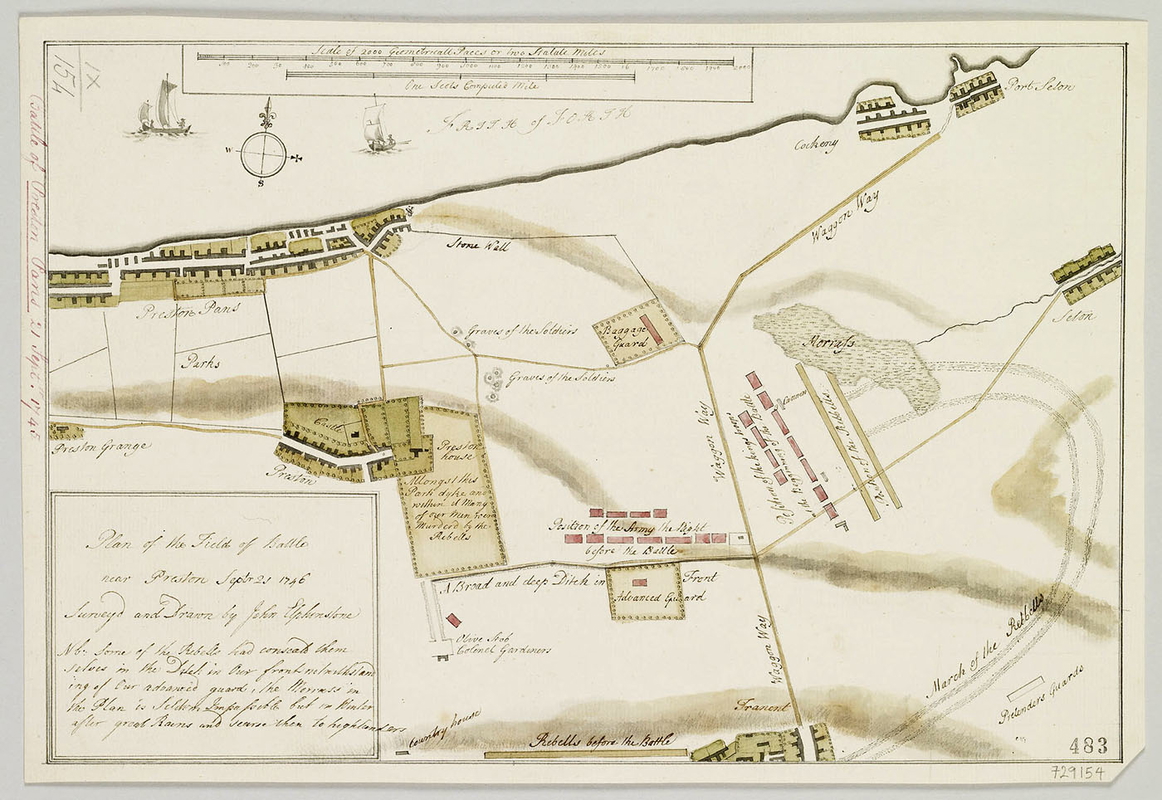 Scale of 2000 Geometricall Paces or two Statute Miles
One Scots Computed Mile
IX
154
(Battle of Preston Pans 21 Sept. 1745
FRITH of FORTH
W
S
Port Seton
Cockeny
Waggon Way
Stone Wall
Seton
Preston Pans
Graves of the Soldiers
Baggage
Guard
Morrass
Parks
Graves of the Soldiers
Castle
Preston Grange
Preston
Preston
house
Allongst this
Park dyke and
within it many
of our Men were
Murderd by the
Rebells
Waggon Way
Cannon
Position of the Kings troops
at the Beginning of the Battle
Position of the Rebells
Position of the Army the Night
before the Battle
A Broad and deep Ditch in Front
Advanced Guard
Olive Stob
Colonel Gardeners
Waggon Way
March of the Rebells
Pretenders Guards
Tranent
Country house
Rebells before the Battle
Plan of the Field of Battle
near Preston Septr 21 1746
Surveyd and Drawn by John Elphinstone
Nb: Some of the Rebells had conceald them
selves in the Ditch in Our front notwithstand
ing of Our advanced guard, the Morrass in
the Plan is Seldom Impassible but in Winter
after great Rains and scarse then to highlanders
483
729154